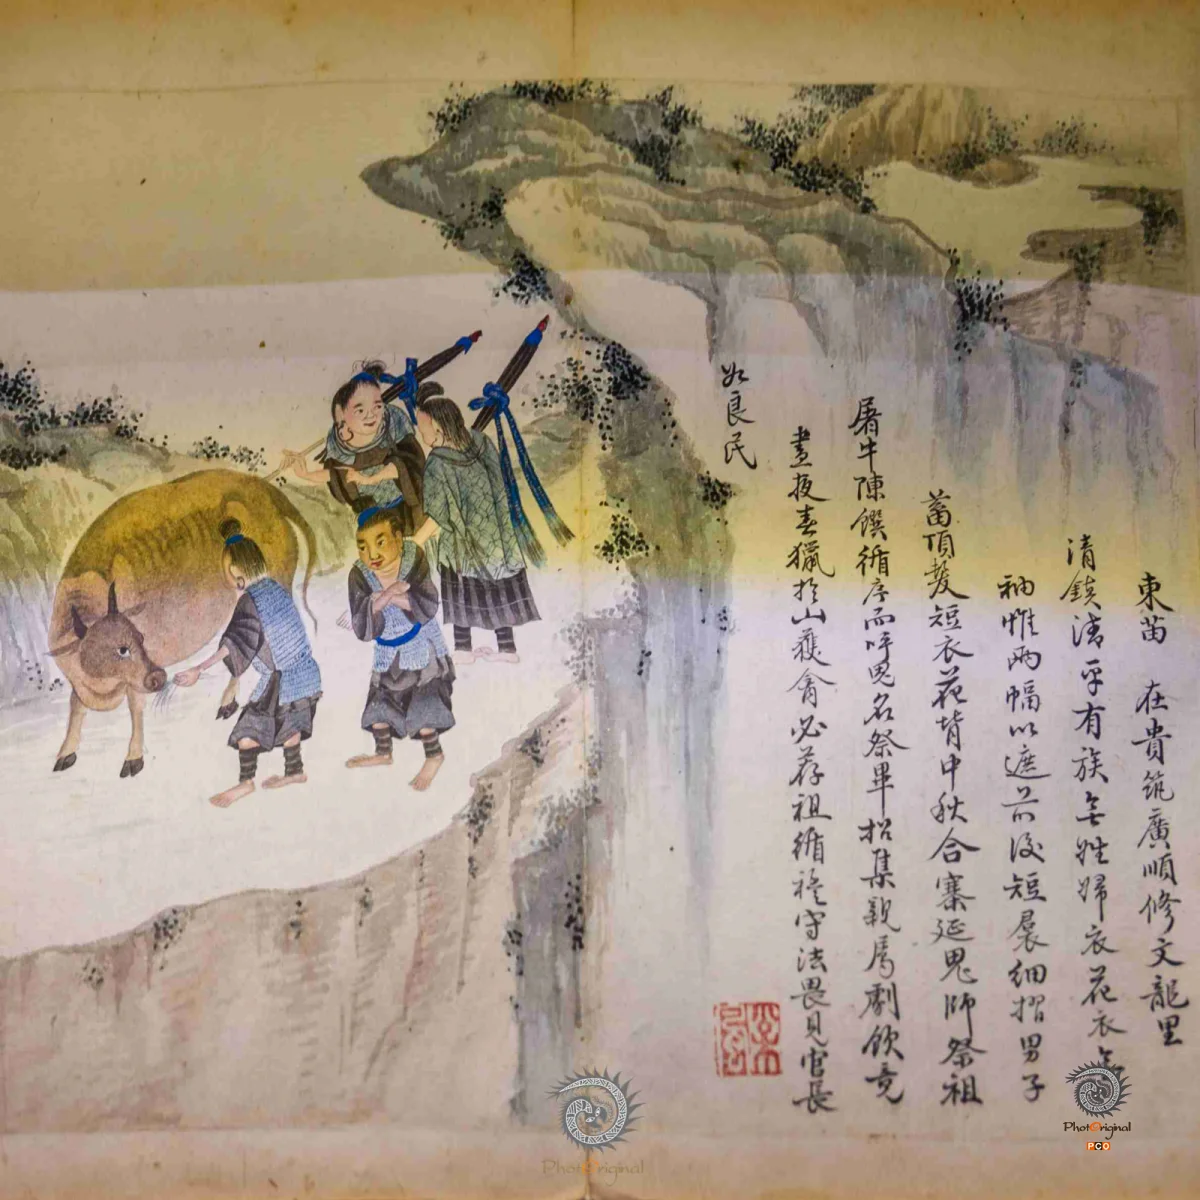 東苗 在貴筑廣順修文龍里
清鎮清平有族無姓婦衣花衣無
袖惟兩幅以遮前後短裠細摺男子
蓄頂髮短衣花背中秋合寨延鬼師祭祖
屠牛陳饌循序而呼鬼名祭畢招集親屬劇飲竟
晝夜春獵於山獲禽必荐祖循禮守法畏見官長
如良民
PhotOriginal
PhotOriginal
PCO